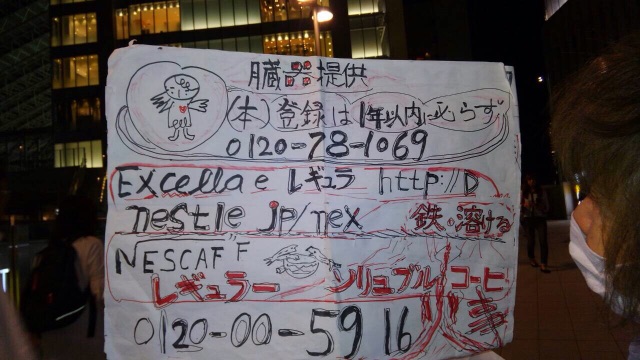 臓器提供
(本)登録は1年以内に必らず
0120-78-1069
Excellae レギュラ http://D
nestle jp/nex 鉄・溶ける
NESCAF"F
レギュラー ソリュブルコーヒー
0120-00-5916